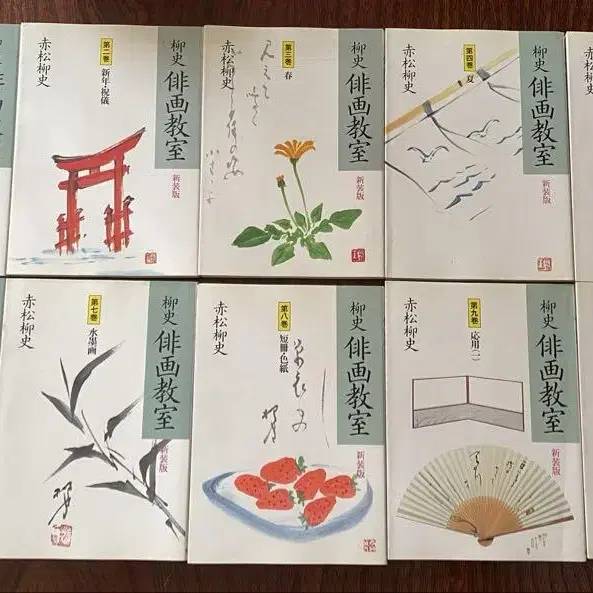 柳史
俳画教室
新装版
第二巻
新年・祝儀
赤松柳史
柳史
俳画教室
新装版
第三巻
春
赤松柳史
柳史
俳画教室
新装版
第四巻
夏
赤松柳史
柳史
俳画教室
新装版
第七巻
水墨画
赤松柳史
柳史
俳画教室
新装版
第八巻
短冊・色紙
赤松柳史
柳史
俳画教室
新装版
第九巻
応用(一)
赤松柳史